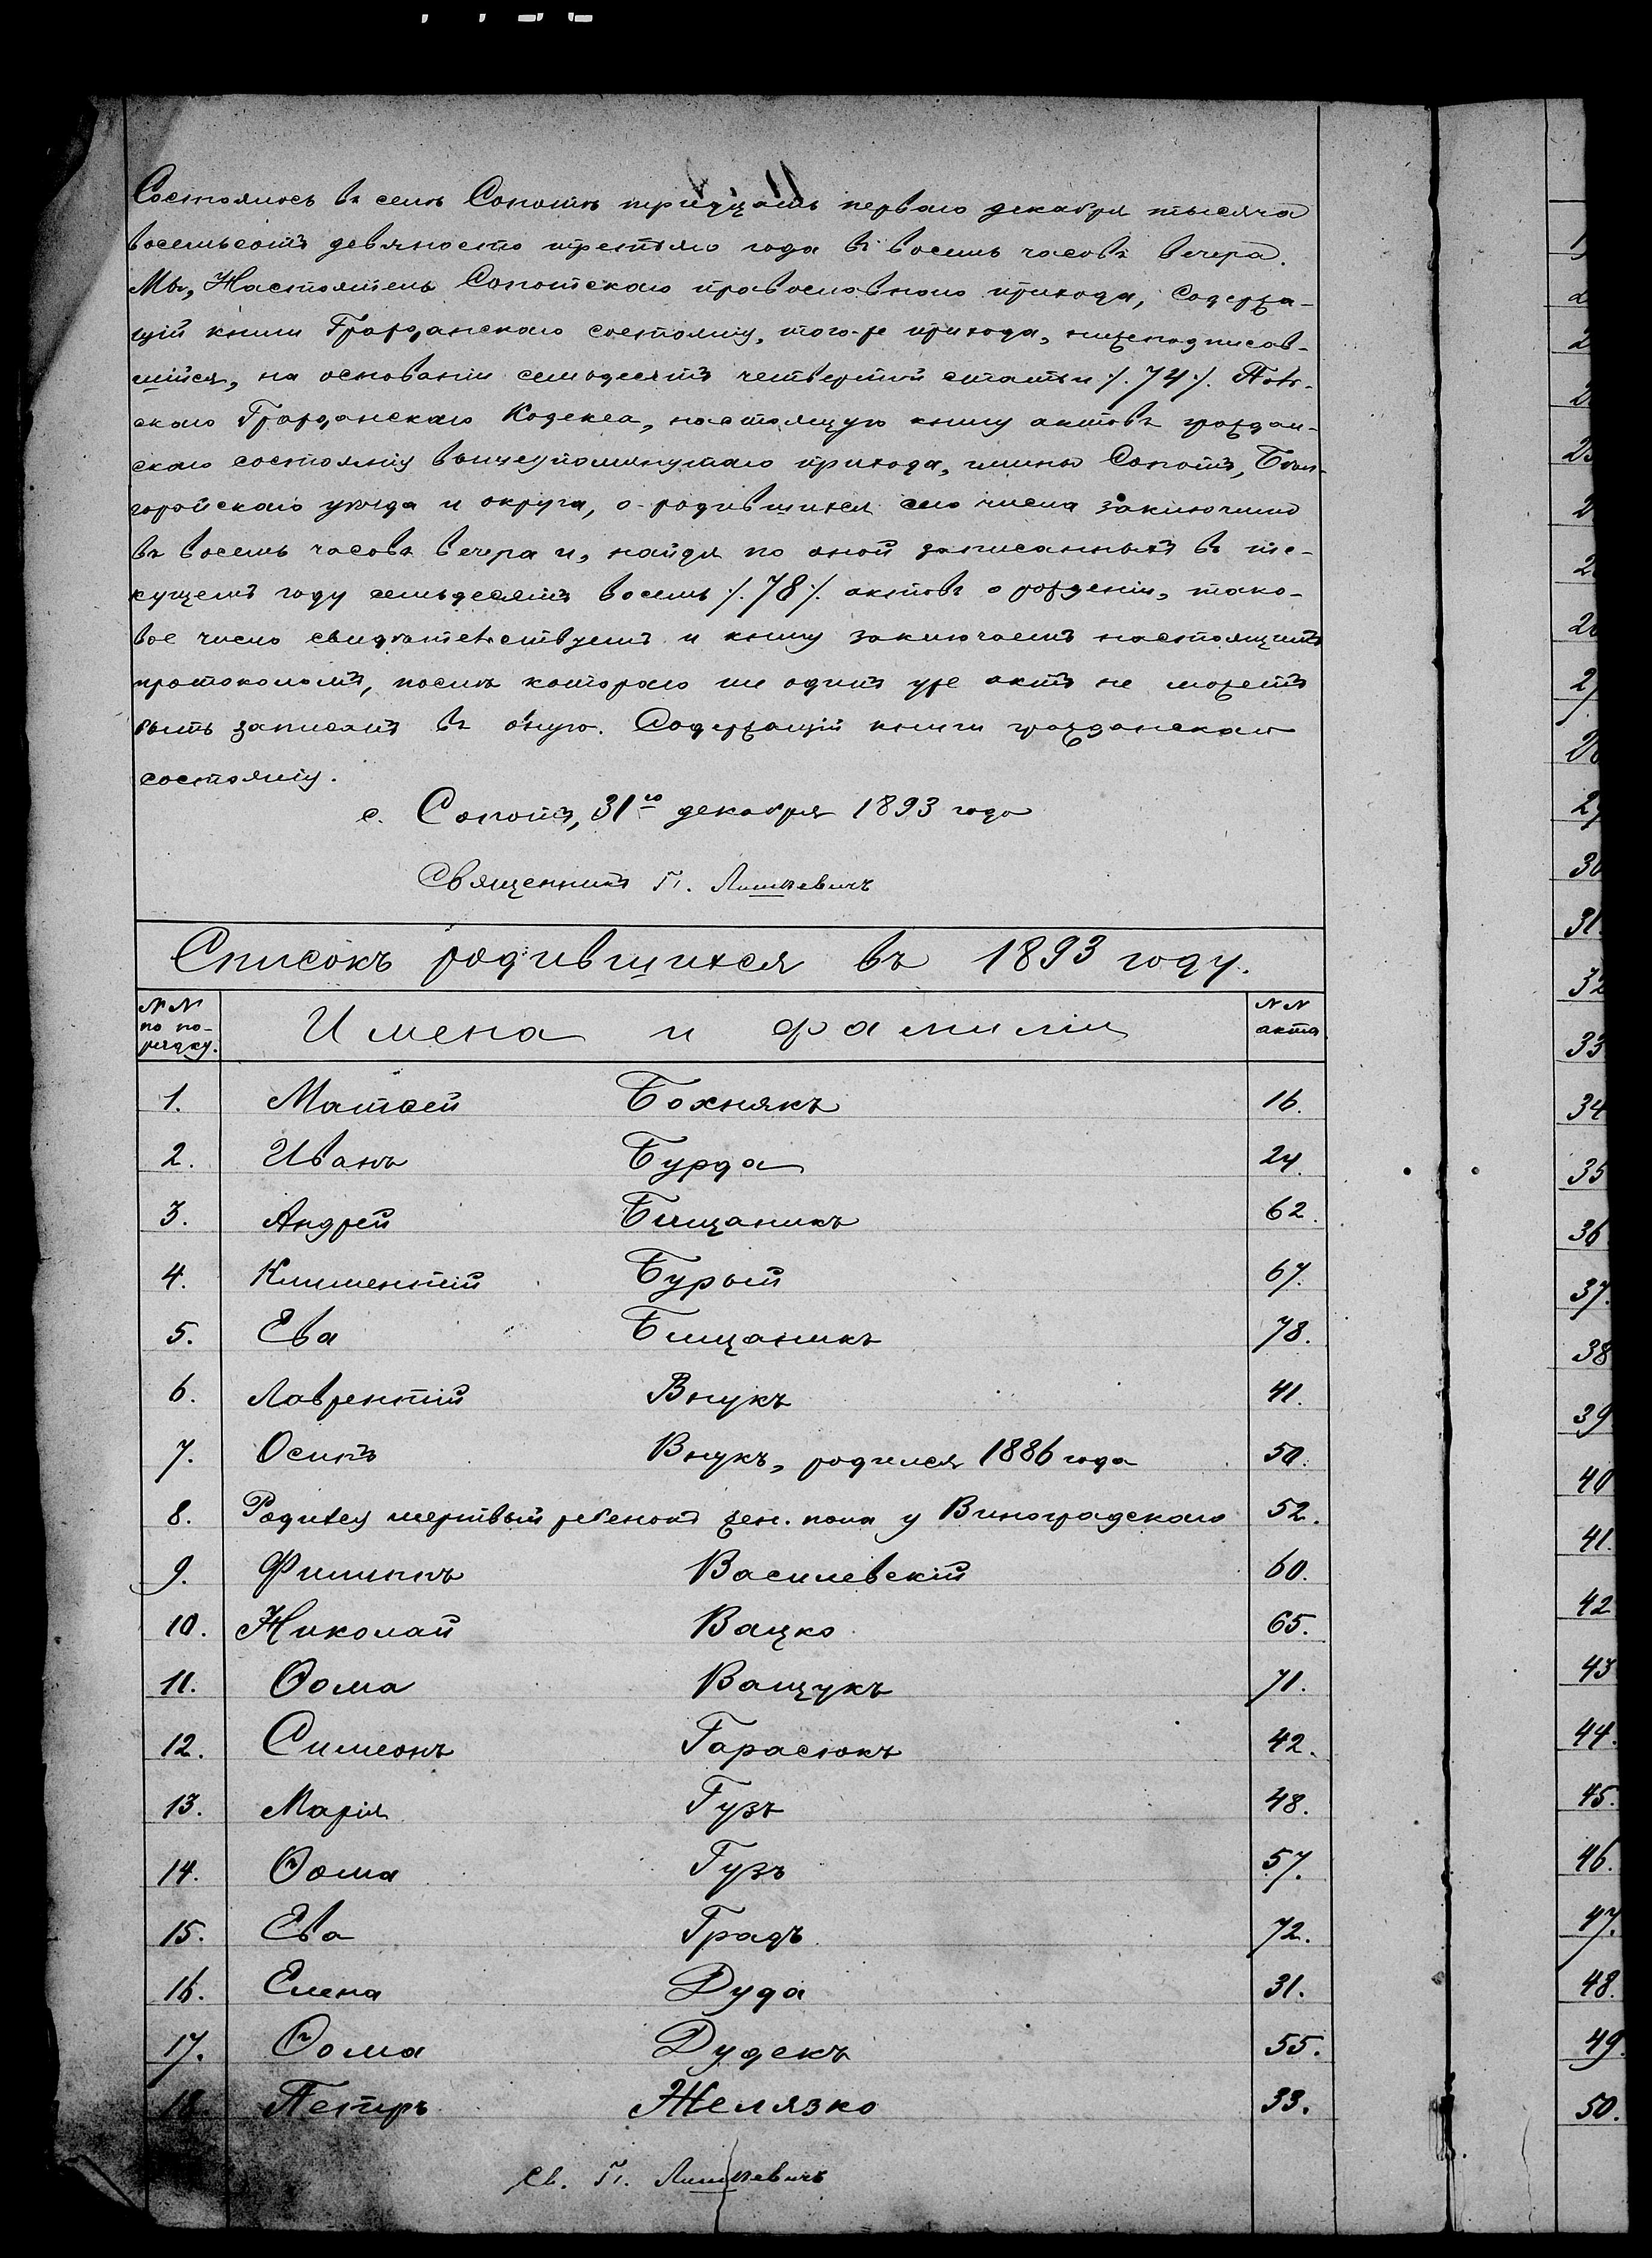 Состоялось въ селѣ Сопотѣ тридцать перваго декабря тысяча
восемьсотъ девяносто третьяго года въ восемь часовъ вечера.
Мы, Настоятель Сопотскаго православнаго прихода, Содержа-
щій книги Гражданскаго состоянія, того-же прихода, нижеподписав-
шійся, на основаніи семьдесятъ четвертой статьи ·/.74·/. Поль-
скаго Гражданскаго Кодекса, настоящую книгу актовъ граждан-
скаго состоянія вышеупомянутаго прихода, гмины Сопотъ, Бѣл-
горайскаго уѣзда и округа, о родившихся сего числа заключилъ
въ восемь часовъ вечера и, найдя по оной записанныхъ въ те-
кущемъ году семьдесятъ восемь ·/.78·/. актовъ о рожденіи, тако-
вое число свидѣтельствуетъ и книгу заключаетъ настоящимъ
протоколомъ, послѣ котораго ни одинъ уже актъ не можетъ
быть записанъ въ оную. Содержащій книги гражданскаго
состоянія.
с. Сопотъ, 31го декабря 1893 года
Священникъ П.
Списокъ родившихся въ 1893 году.
NN по по-рядку. Имена и фамиліи NN акта
1. Матѳей Бохнякъ 16.
2. Иванъ Бурда 24.
3. Андрей Бищаникъ 62.
4. Климентій Бурый 67.
5. Ева Бищаникъ 78.
6. Лаврентій Внукъ 41.
7. Осипъ Внукъ, родился 1886 года 50.
8. Родился мертвый ребенокъ жен. пола у Виноградскаго 52.
9. Филиппъ Василевскій 60.
10. Николай Вацко 65.
11. Ѳома Ващукъ 71.
12. Симеонъ Гарасюкъ 42.
13. Марія Гузъ 48.
14. Ѳома Гузъ 57.
15. Ева Градъ 72.
16. Елена Дуда 31.
17. Ѳома Дудекъ 55.
18. Петръ Желязко 33.
Св. П.
30
31.
32
33
34
35
36
37.
38
39
40
41.
42
43
44.
45.
46.
47.
48.
49.
50.